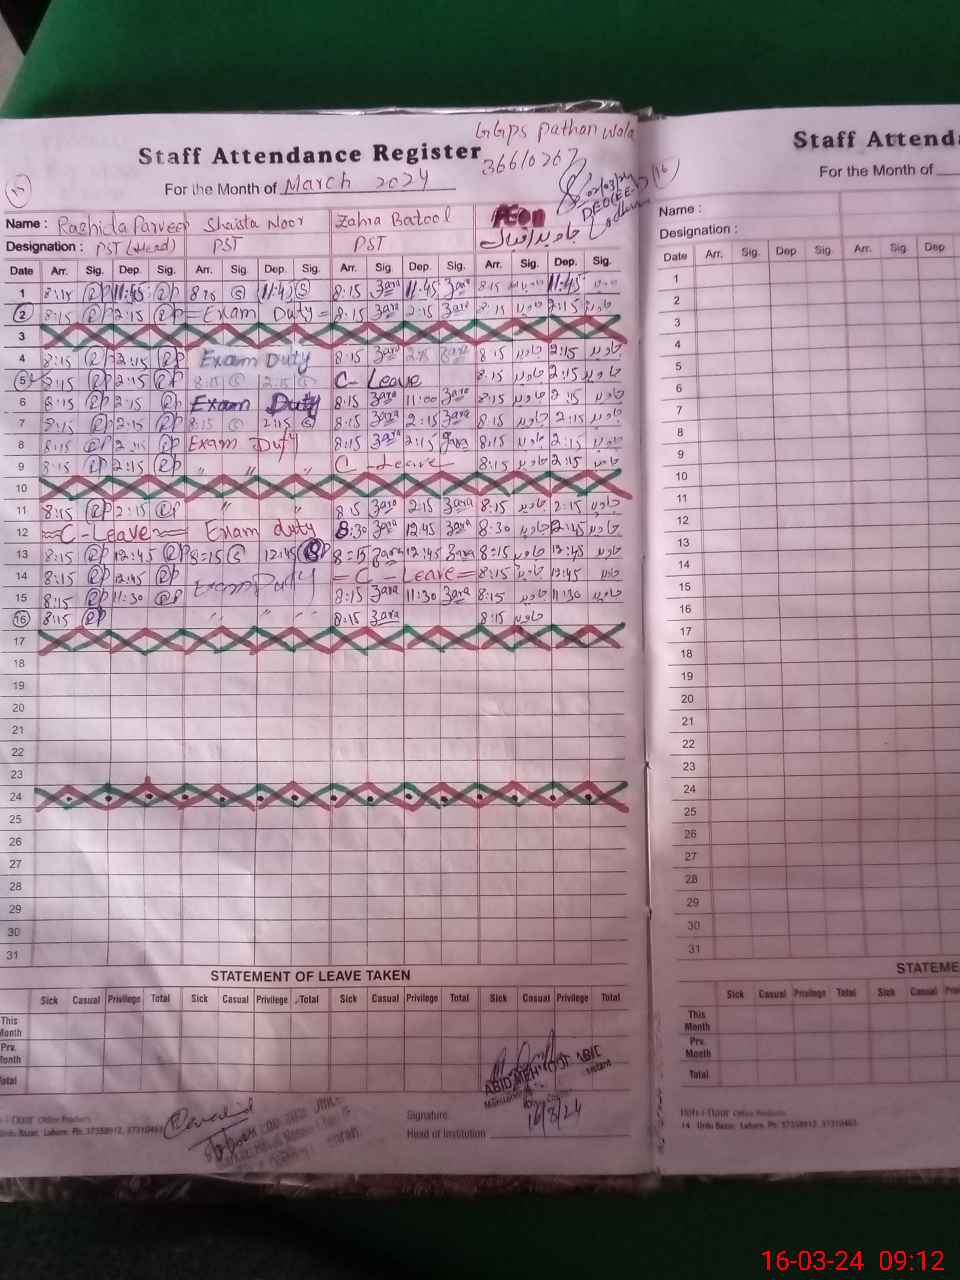 GGPS Pathan Wala
Staff Attendance Register
36610267
For the Month of March 2024
Name : Rashida Parveen Shaista Noor Zahra Batool PEON
Designation : PST (Head) PST PST جاوید اقبال
Date Arr. Sig. Dep. Sig. Arr. Sig. Dep. Sig. Arr. Sig. Dep. Sig. Arr. Sig. Dep. Sig.
1 8:15 RP 11:45 RP 8:15 S 11:45 S 8:15 Zara 11:45 Zara 8:15 جاوید 11:45
2 8:15 RP 2:15 RP = Exam Duty = 8:15 Zara 2:15 Zara 8:15 جاوید 2:15 جاوید
3
4 8:15 RP 2:15 RP Exam Duty 8:15 Zara 2:15 Zara 8:15 جاوید 2:15 جاوید
5 8:15 RP 2:15 RP 8:15 S 2:15 S C-Leave 8:15 جاوید 2:15 جاوید
6 8:15 RP 2:15 RP Exam Duty 8:15 Zara 11:00 Zara 8:15 جاوید 2:15 جاوید
7 8:15 RP 2:15 RP 8:15 S 2:15 S 8:15 Zara 2:15 Zara 8:15 جاوید 2:15 جاوید
8 8:15 RP 2:15 RP Exam Duty 8:15 Zara 2:15 Zara 8:15 جاوید 2:15 جاوید
9 8:15 RP 2:15 RP " " " C-Leave 8:15 جاوید 2:15 جاوید
10
11 8:15 RP 2:15 RP " " 8:15 Zara 2:15 Zara 8:15 جاوید 2:15 جاوید
12 = C-Leave = Exam duty 8:30 Zara 12:45 Zara 8:30 جاوید 12:45 جاوید
13 8:15 RP 12:45 RP 8=15 S 12:45 S 8=15 Zara 12:45 Zara 8=15 جاوید 12:45 جاوید
14 8:15 RP 12:45 RP Exam Duty = C-Leave = 8:15 جاوید 12:45 جاوید
15 8:15 RP 11:30 RP 8:15 Zara 11:30 Zara 8:15 جاوید 11:30 جاوید
16 8:15 RP " " " 8:15 Zara 8:15 جاوید
17
18
19
20
21
22
23
24
25
26
27
28
29
30
31
STATEMENT OF LEAVE TAKEN
Sick Casual Privilege Total Sick Casual Privilege Total Sick Casual Privilege Total Sick Casual Privilege Total
This Month
Prv. Month
Total
ABID MEHMOOD
16/3/24
Signature
Head of Institution
Office Products
Urdu Bazar, Lahore. Ph: 37358912, 37310463
Staff Attenda
For the Month of
Name :
Designation :
Date Arr. Sig. Dep Sig. Arr. Sig. Dep
1
2
3
4
5
6
7
8
9
10
11
12
13
14
15
16
17
18
19
20
21
22
23
24
25
26
27
28
29
30
31
STATEME
Sick Casual Privilege Total Sick Casual
This Month
Prv. Month
Total
Office Products
14 Urdu Bazar, Lahore. Ph: 37358912, 37310463
16-03-24 09:12